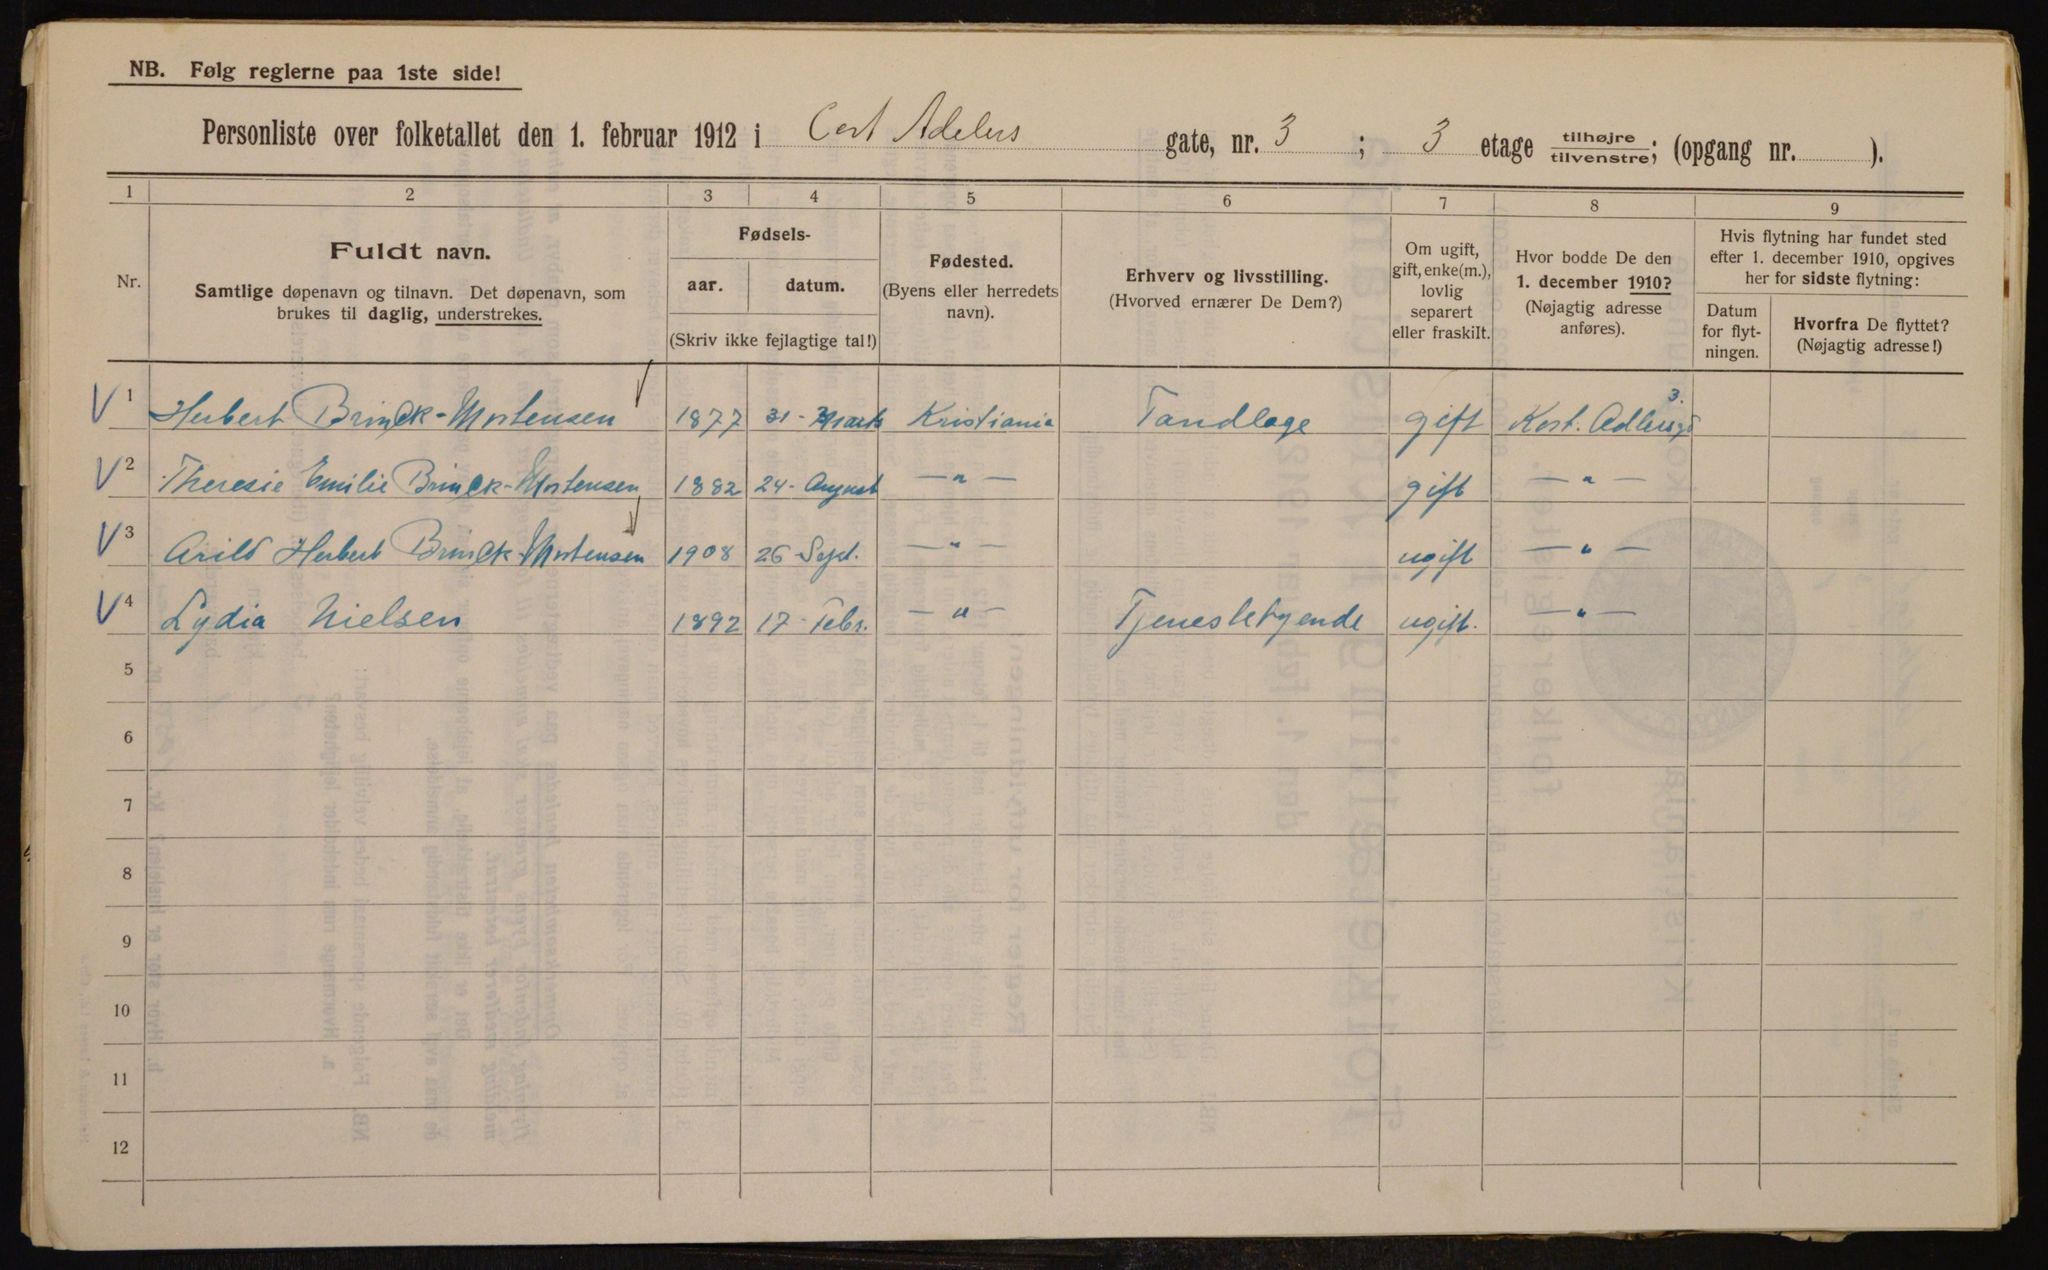 NB. Følg reglerne paa 1ste side!
Personliste over folketallet den 1. februar 1912 i Cort Adelers gate, nr. 3 ; 3 etage tilhøjre/tilvenstre; (opgang nr. ).
1 2 3 4 5 6 7 8 9
Nr.
Fuldt navn.
Samtlige døpenavn og tilnavn. Det døpenavn, som
brukes til daglig, understrekes.
Fødsels-
aar. datum.
(Skriv ikke fejlagtige tal!)
Fødested.
(Byens eller herredets
navn).
Erhverv og livsstilling.
(Hvorved ernærer De Dem?)
Om ugift,
gift, enke(m.),
lovlig
separert
eller fraskilt.
Hvor bodde De den
1. december 1910?
(Nøjagtig adresse
anføres).
Hvis flytning har fundet sted
efter 1. december 1910, opgives
her for sidste flytning:
Datum
for flyt-
ningen.
Hvorfra De flyttet?
(Nøjagtig adresse!)
V 1 Herbert Brinck-Mortensen 1877 31 - Marts Kristiania Tandlæge gift Kort. Adlersgd 3.
V 2 Theresie Emilie Brinck-Mortensen 1882 24 - August — " — gift — " —
V 3 Arild Herbert Brinck-Mortensen 1908 26 - Sept. — " — ugift — " —
V 4 Lydia Nielsen 1892 17 - Febr. — " — Tjenestetyende ugift. — " —
5
6
7
8
9
10
11
12